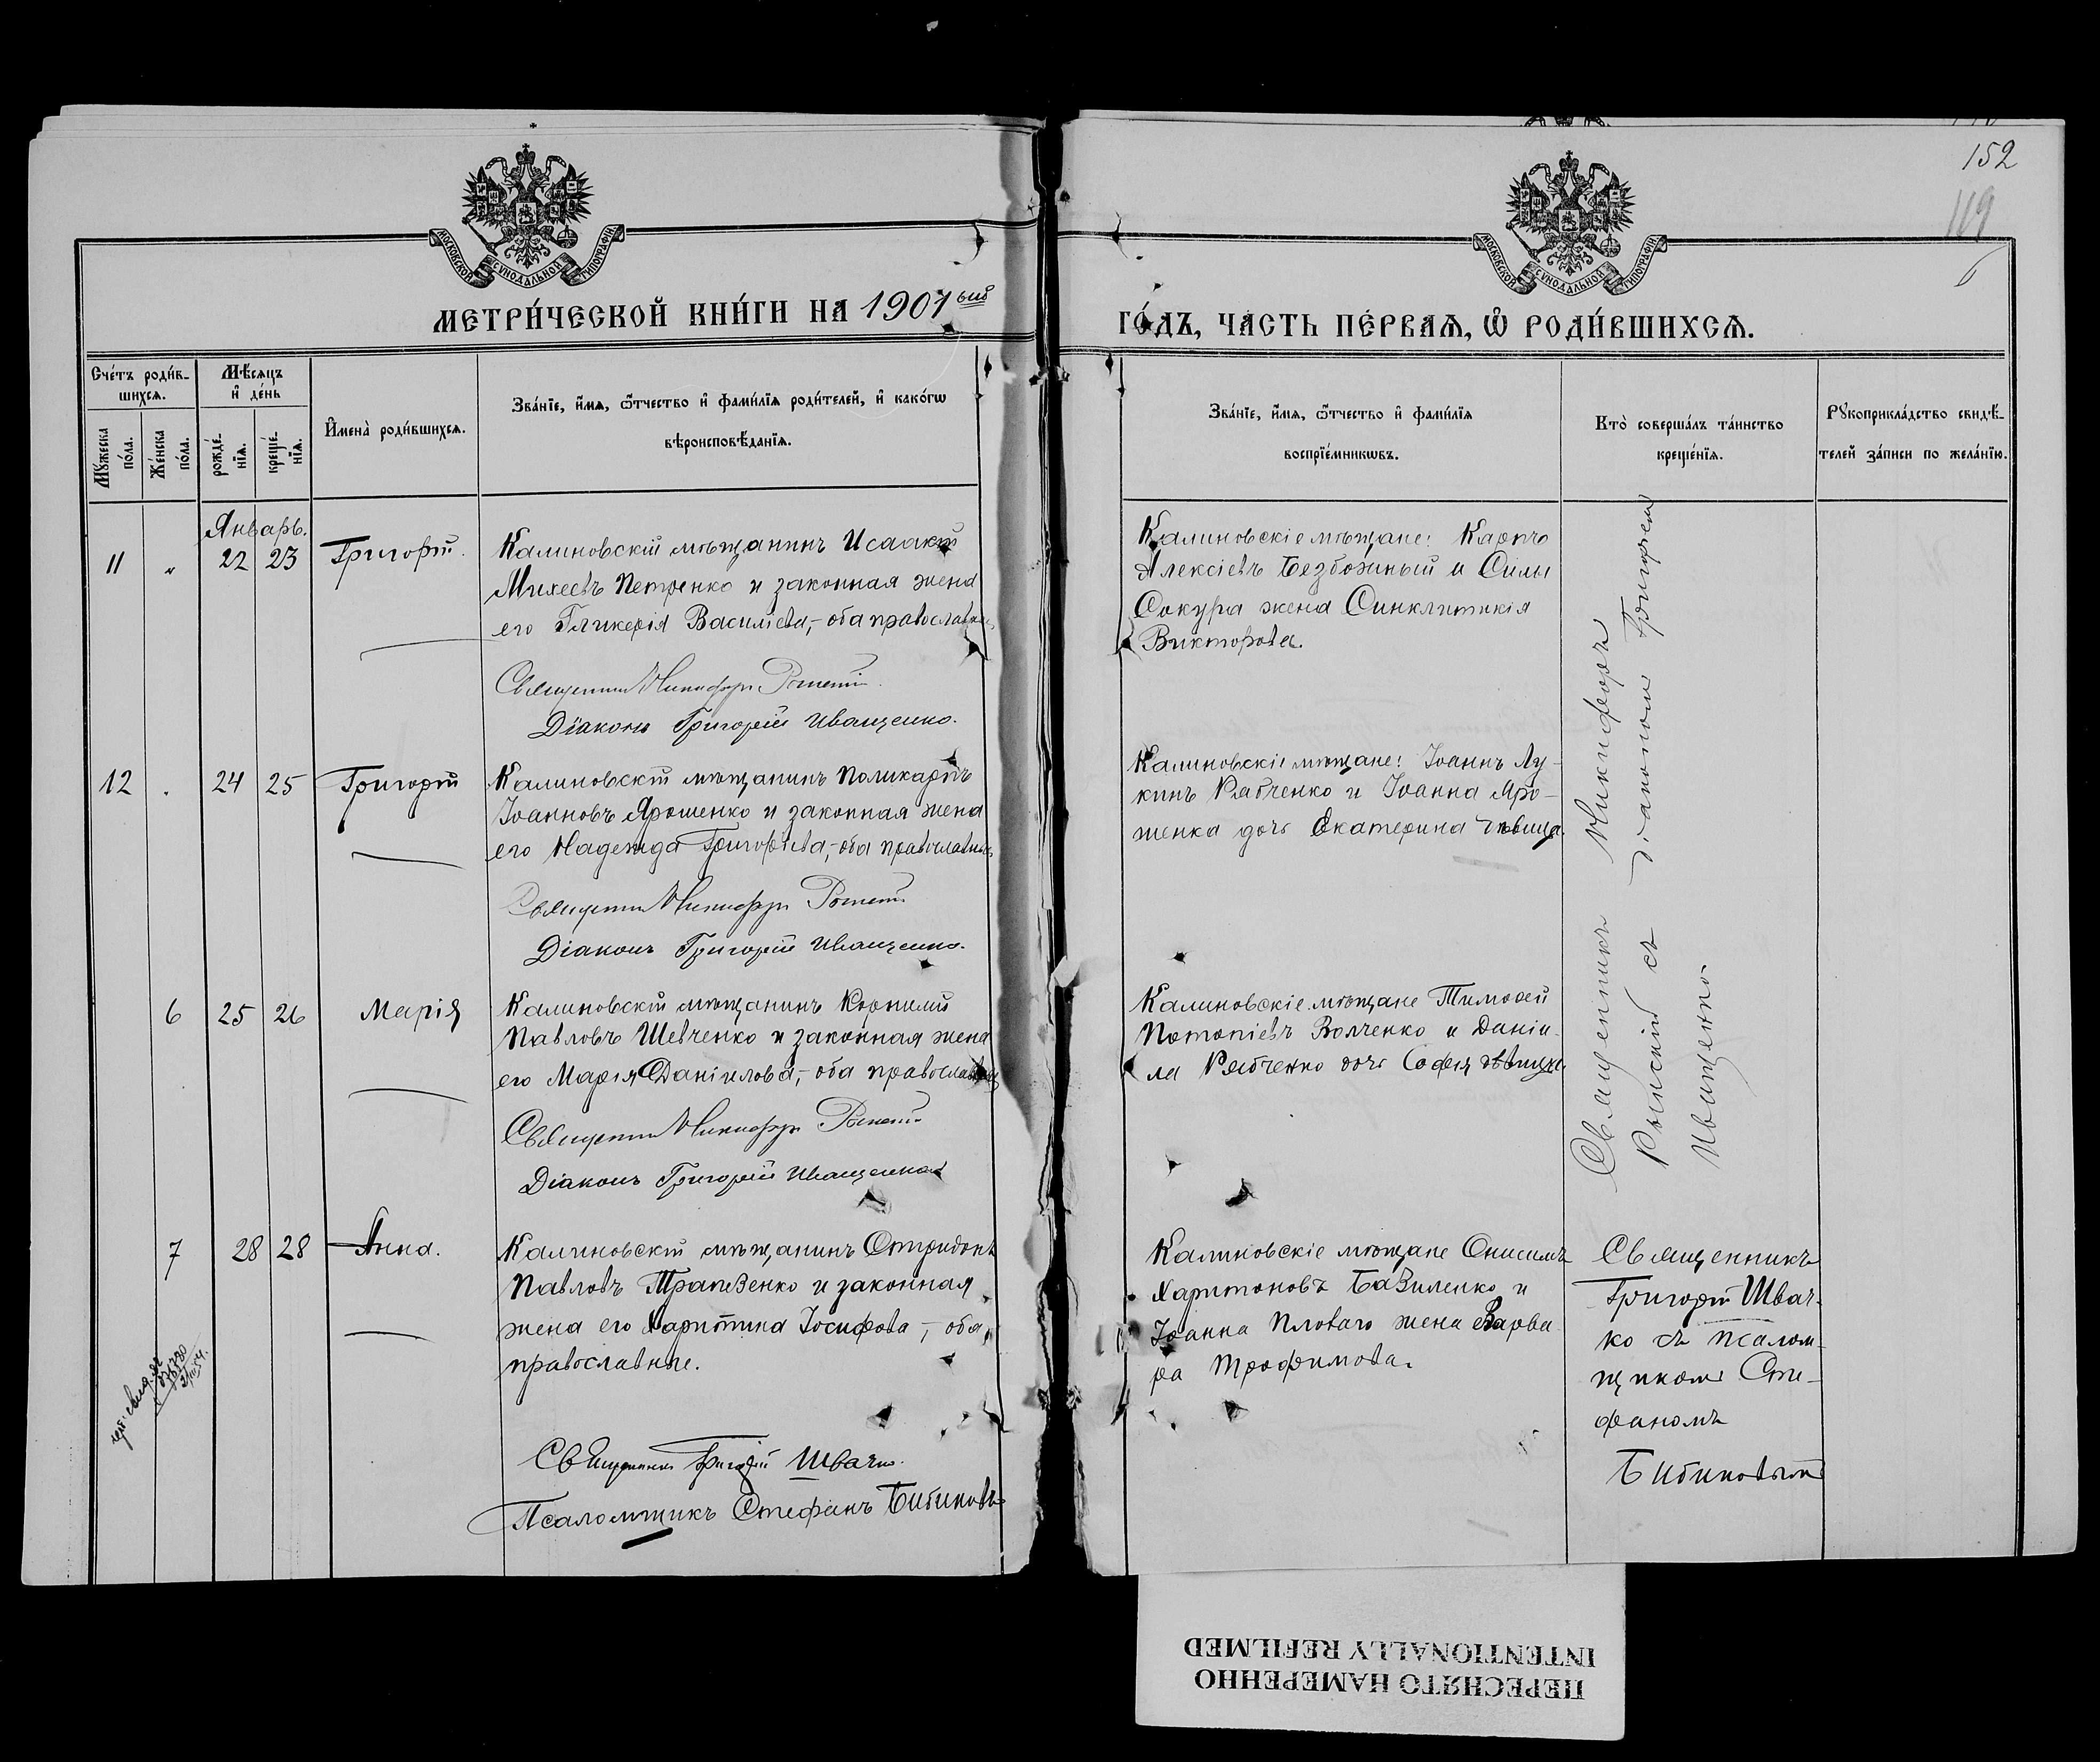 152
119
МОСКОВСКОЙ СѴНОДАЛЬНОЙ ТИПОГРАФІИ
МОСКОВСКОЙ СѴНОДАЛЬНОЙ ТИПОГРАФІИ
МЕТРИ́ЧЕСКОЙ КНИ́ГИ НА 1901
ГО́ДЪ, ЧА́СТЬ ПЕ́РВАѦ, Ѽ РОДИ́ВШИХСѦ.
Сче́тъ роди́в-
шихсѧ.
Мꙋ́жеска
по́ла.
Же́нска
по́ла.
Мѣ́сѧцъ
и҆ де́нь
рожде́-
нїѧ.
креще́-
нїѧ.
И҆мена̀ роди́вшихсѧ.
Зва́нїе, и҆́мѧ, ѻ҆́тчество и҆ фами́лїѧ роди́телей, и҆ како́гѡ
вѣроисповѣ́данїѧ.
Зва́нїе, и҆́мѧ, ѻ҆́тчество и҆ фами́лїѧ
воспрїе́мникѡвъ.
Кто̀ соверша́лъ та́инство
креще́нїѧ.
Рꙋкоприкла́дство свидѣ́-
телей за́писи по жела́нїю.
Январь.
11 " 22 23 Григорій.
Калиновскій мѣщанинъ Исаакій
Михеевъ Петренко и законная жена
его Гликерія Василіева,- оба православные
Священникъ Никифоръ
Діаконъ Григорій Иващенко.
Калиновскіе мѣщане: Карпъ
Алексіевъ Безбожный и Силы
Сокура жена Синклитикія
Викторова.
12 . 24 25 Григорій
Калиновскій мѣщанинъ Поликарпъ
Іоанновъ Ярошенко и законная жена
его Надежда Григоріева,- оба православные
Священникъ Никифоръ
Діаконъ Григорій Иващенко.
Калиновскіе мѣщане: Іоаннъ Лу-
кинъ Рябченко и Іоанна Яро-
шенка дочь Екатерина дѣвица.
6 25 26 Марія
Калиновскій мѣщанинъ Корнилій
Павловъ Шевченко и законная жена
его Марія Даніилова,- оба православны
Священникъ Никифоръ
Діаконъ Григорій Иващенко
Калиновскіе мѣщане Тимофей
Потапіевъ Волченко и Даніи-
ла Рябченко дочь Софія дѣвица.
Священникъ Никифоръ
съ діакономъ Григоріемъ
Иващенко.
7 28 28 Анна.
Калиновскій мѣщанинъ Спиридонъ
Павловъ Трапезенко и законная
жена его Харитина Іосифова,- оба
православные.
Священникъ Григорій Швачко.
Псаломщикъ Стефанъ Бибиковъ
Калиновскіе мѣщане Онисимъ
Харитоновъ Базиленко и
Іоанна Пловаго жена Варва-
ра Трофимова.
Священникъ
Григорій Швач-
ко съ псалом-
щикомъ Сте-
фаномъ
Бибиковымъ
ПЕРЕСНЯТО НАМЕРЕННО
INTENTIONALLY REFILMED